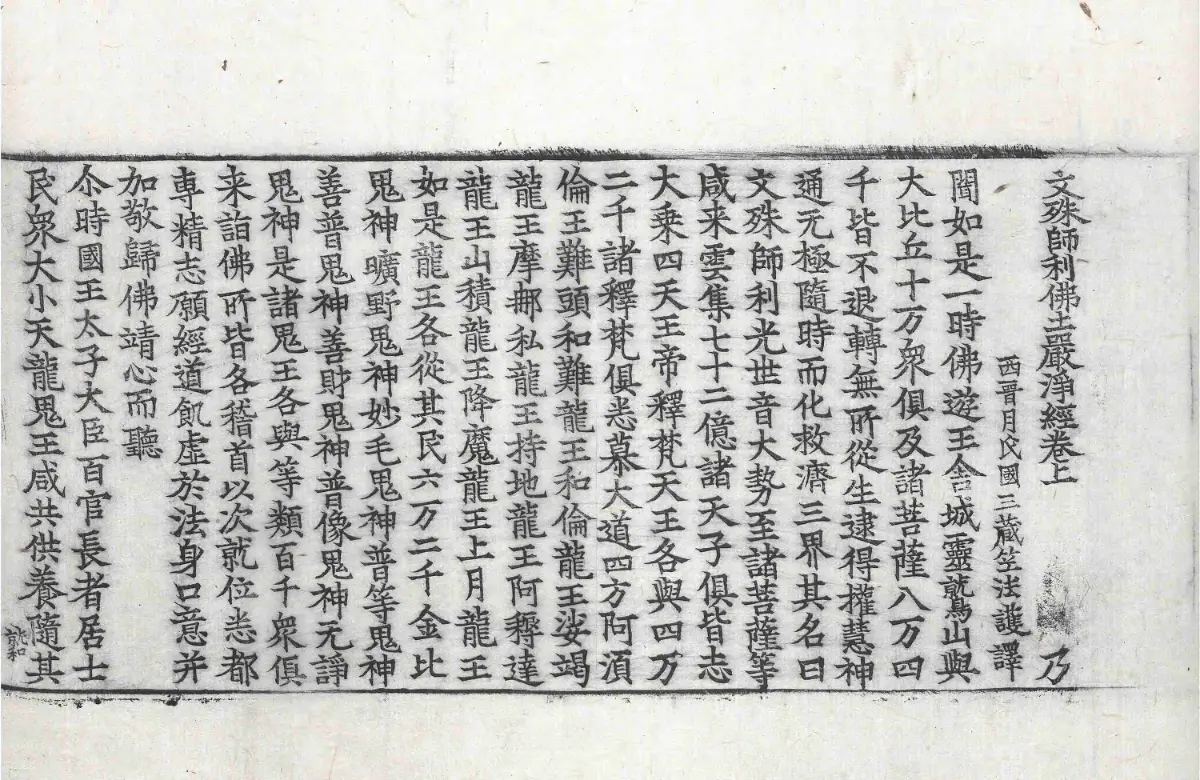 文殊師利佛土嚴淨經卷上 乃
西晉月氏國三藏竺法護譯
聞如是一時佛遊王舍城靈鷲山與
大比丘十万衆俱及諸菩薩八万四
千皆不退轉無所從生逮得權慧神
通无極隨時而化救濟三界其名曰
文殊師利光世音大勢至諸菩薩等
咸来雲集七十二億諸天子俱皆志
大乗四天王帝釋梵天王各與四万
二千諸釋梵俱悉慕大道四方阿須
倫王難頭和難龍王和倫龍王娑竭
龍王摩那私龍王持地龍王阿耨達
龍王山積龍王降魔龍王上月龍王
如是龍王各從其民六万二千金比
鬼神曠野鬼神妙毛鬼神普等鬼神
善普鬼神善財鬼神普像鬼神无諍
鬼神是諸鬼王各與等類百千衆俱
来詣佛所皆各稽首以次就位悉都
專精志願經道飢虛於法身口意并
加敬歸佛靖心而聽
尒時國王太子大臣百官長者居士
民衆大小天龍鬼王咸共供養隨其